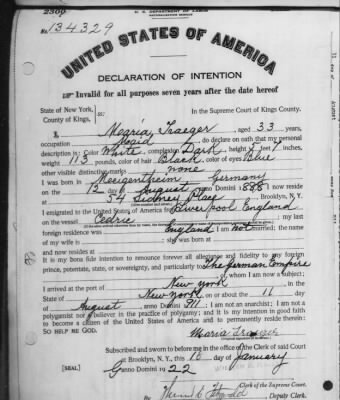 2309
U. S. DEPARTMENT OF LABOR
NATURALIZATION SERVICE
No. 134329
UNITED STATES OF AMERICA
DECLARATION OF INTENTION
Invalid for all purposes seven years after the date hereof
State of New York,
County of Kings, ss:
In the Supreme Court of Kings County.
I, Megria Traeger, aged 33 years,
occupation Maid, do declare on oath that my personal
description is: Color White, complexion Dark, height 5 feet inches,
weight 113 pounds, color of hair Black, color of eyes Blue
other visible distinctive marks none
I was born in Mergentheim Germany
on the 12 day of August, anno Domini 1888; I now reside
at 54 Sidney Place, Brooklyn, N. Y.
I emigrated to the United States of America from Liverpool England
on the vessel Cedric; my last
foreign residence was England I am not married; the name
of my wife is; she was born at
and now resides at
It is my bona fide intention to renounce forever all allegiance and fidelity to any foreign
prince, potentate, state, or sovereignty, and particularly to The German Empire
, of whom I am now a subject;
I arrived at the port of New York, in the
State of New York, on or about the 11 day
of August, anno Domini; I am not an anarchist; I am not a
polygamist nor a believer in the practice of polygamy; and it is my intention in good faith
to become a citizen of the United States of America and to permanently reside therein:
SO HELP ME GOD.
Maria Traeger
Subscribed and sworn to before me in the office of the Clerk of said Court
at Brooklyn, N. Y., this 16 day of January
[SEAL]
anno Domini 1922
Clerk of the Supreme Court.
Deputy Clerk.